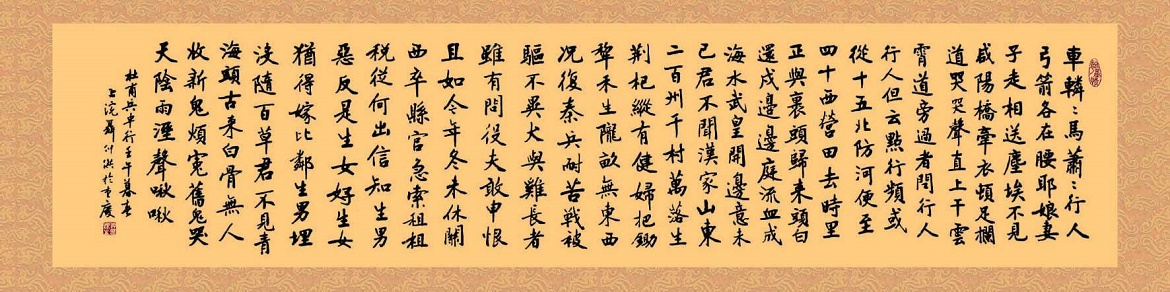 車轔〻馬蕭〻行人
弓箭各在腰耶娘妻
子走相送塵埃不見
咸陽橋牽衣頓足攔
道哭哭聲直上干雲
霄道旁過者問行人
行人但云點行頻或
從十五北防河便至
四十西營田去時里
正與裹頭歸來頭白
還戍邊邊庭流血成
海水武皇開邊意未
已君不聞漢家山東
二百州千村萬落生
荆杞縱有健婦把鋤
犂禾生隴畝無東西
况復秦兵耐苦戰被
驅不異犬與雞長者
雖有問役夫敢申恨
且如今年冬未休關
西卒縣官急索租租
稅從何出信知生男
惡反是生女好生女
猶得嫁比鄰生男埋
沒隨百草君不見青
海頭古来白骨無人
收新鬼煩寃舊鬼哭
天陰雨溼聲啾啾
杜甫兵車行壬午暮春
上浣聶仲於重慶